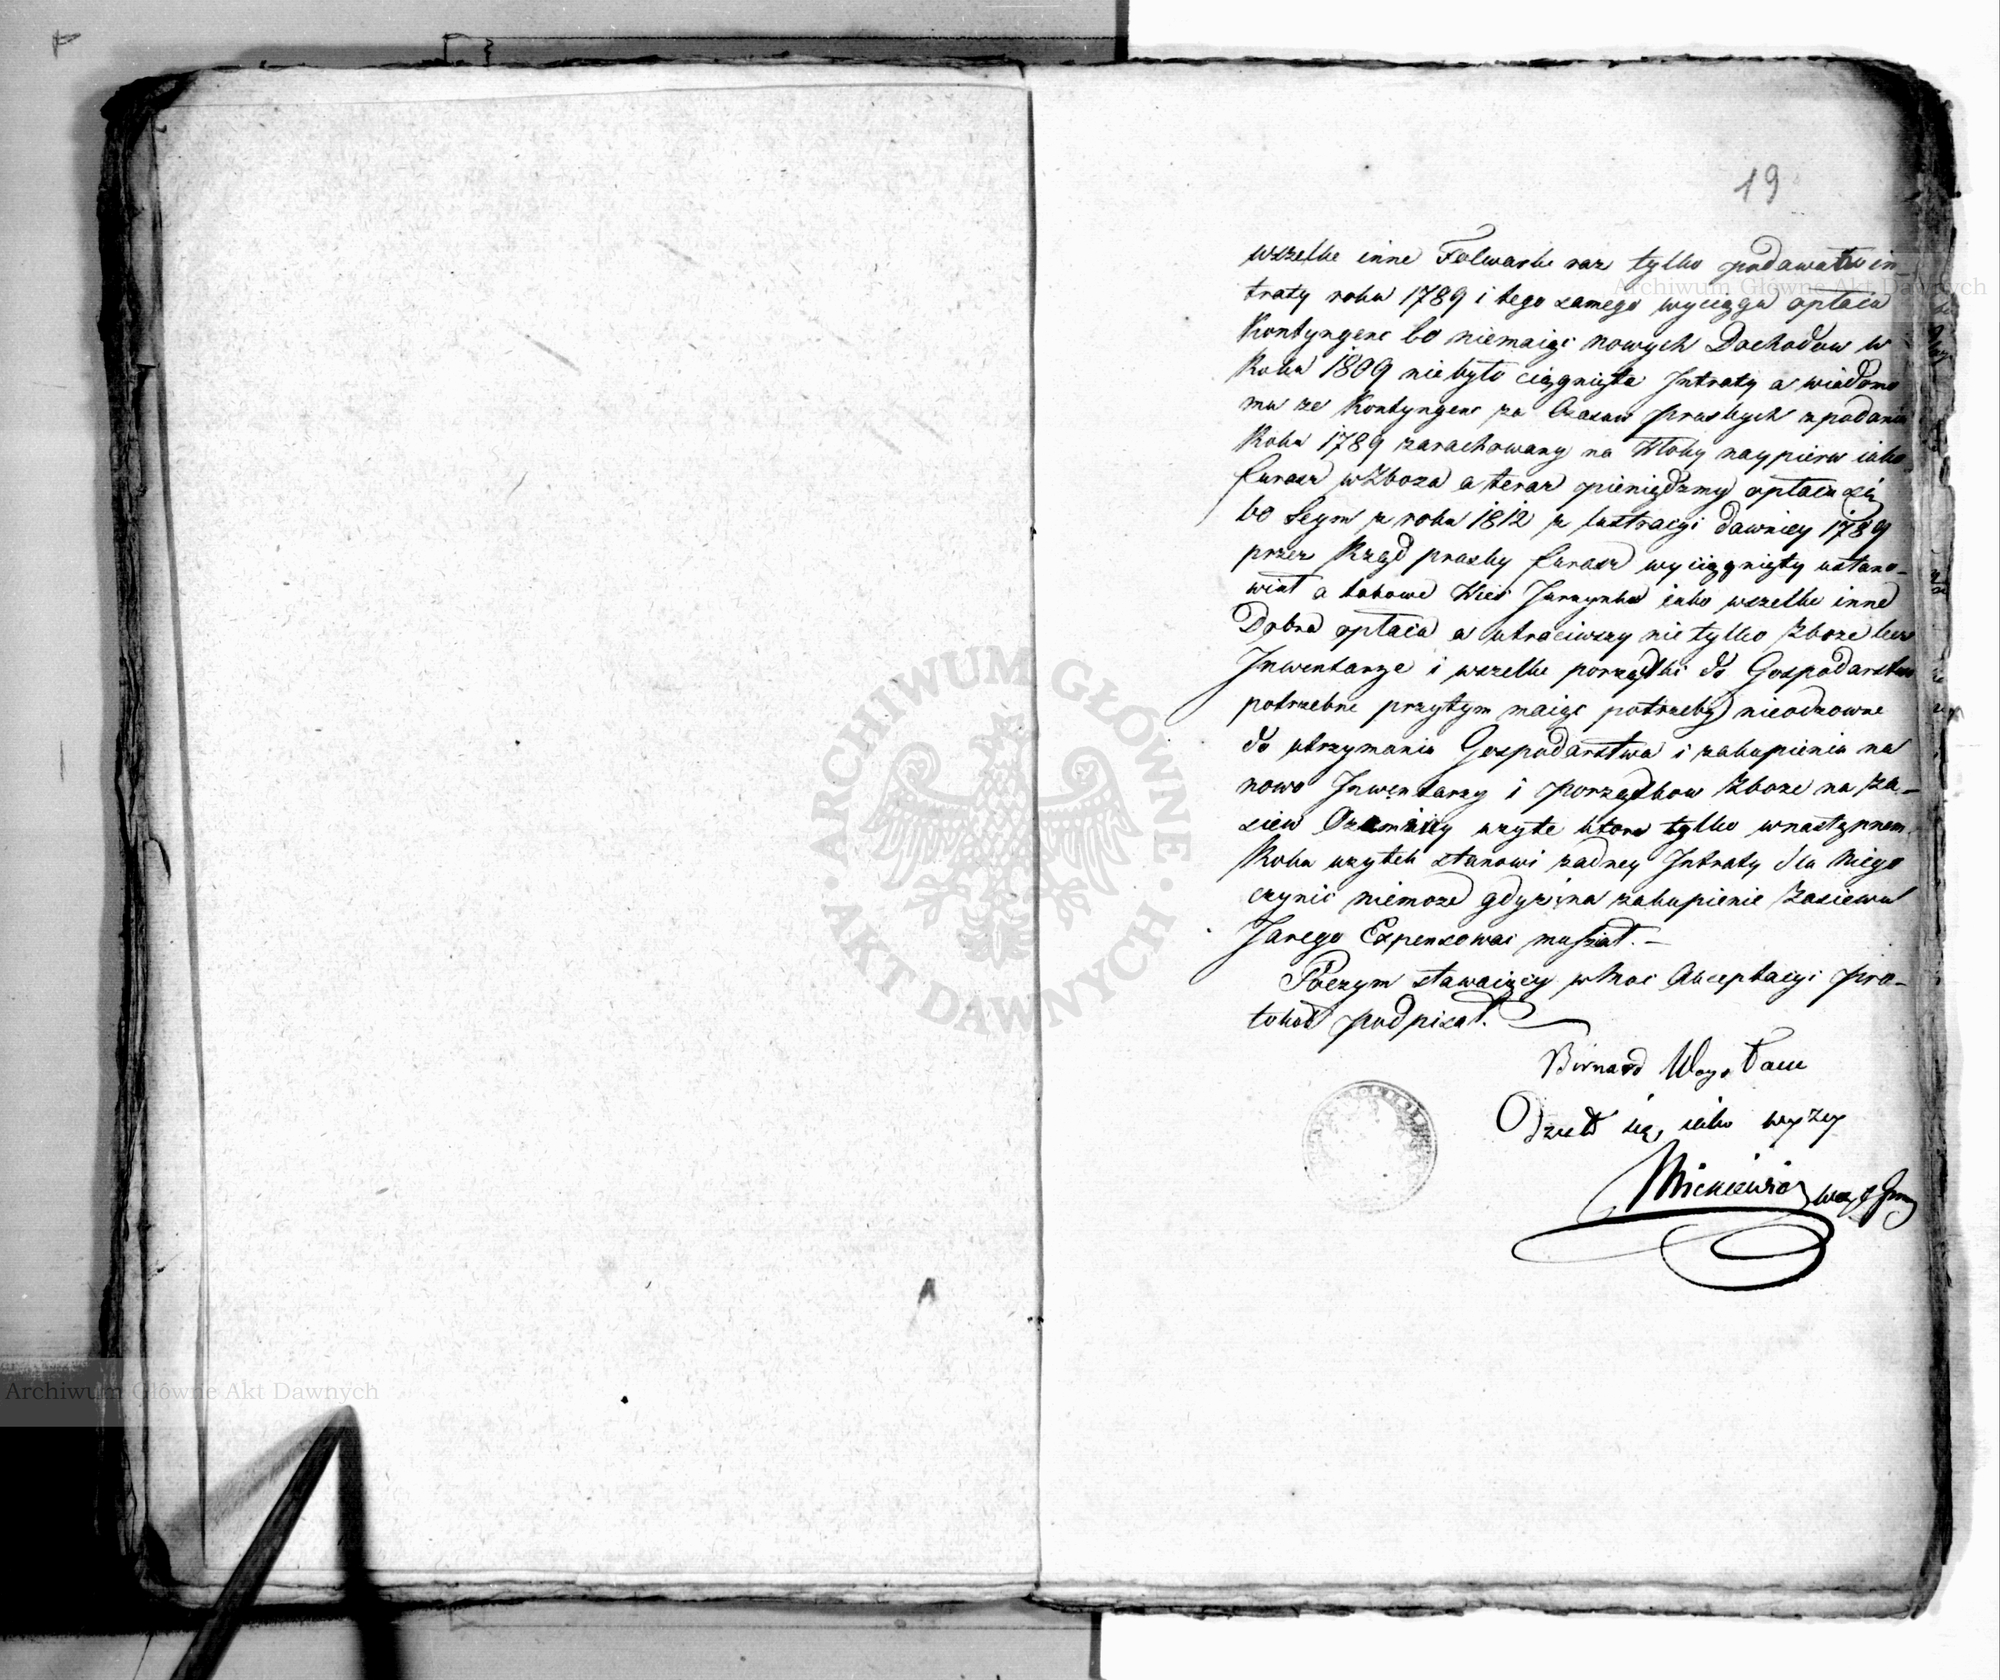 19
wszelkie inne Folwarki raz tylko podawał in-
traty roku 1789 i tego samego wyciągu opłaca
Kontyngens bo niemaiąc nowych Dochodow w
Roku 1809 niebyło ciągnięta Intraty a wiadomo
mu ze Kontyngens za Czasow pruskych z podania
Roku 1789 zarachowany na Kłoby naypierw iako
furasz w Zboza a teraz pieniędzmy opłaca się
bo Seym z roku 1812 z lustracyi dawniey 1789
przez Rząd prusky furasz wyciągnięty ustano-
wił a takowe Wieś Jurzynka iako wszelkie inne
Dobra opłaca a utraciwszy nie tylko Zboze lecz
Inwentarze i wszelkie porządki do Gospodarstwa
potrzebne przytym maiąc potrzeby nieodzowne
do utrzymania Gospodarstwa i zakupienia na
nowo Inwentarzy i porządkow Zboze na Za-
siew Oziminy uzyte ktore tylko w nastepnem
Roku uzytek stanowi zadney Intraty dla Niego
czynic niemoze gdyz i na zakupienie Zasiewu
Jarego Expensowac musiał. –
Poczym stawaiący w Moc Akceptacyi pro-
tokoł podpisał.
Birnard
Działo się, iako wyzy
Mickiewicz
ARCHIWUM GŁÓWNE · AKT DAWNYCH ·
Archiwum Główne Akt Dawnych
Archiwum Główne Akt Dawnych